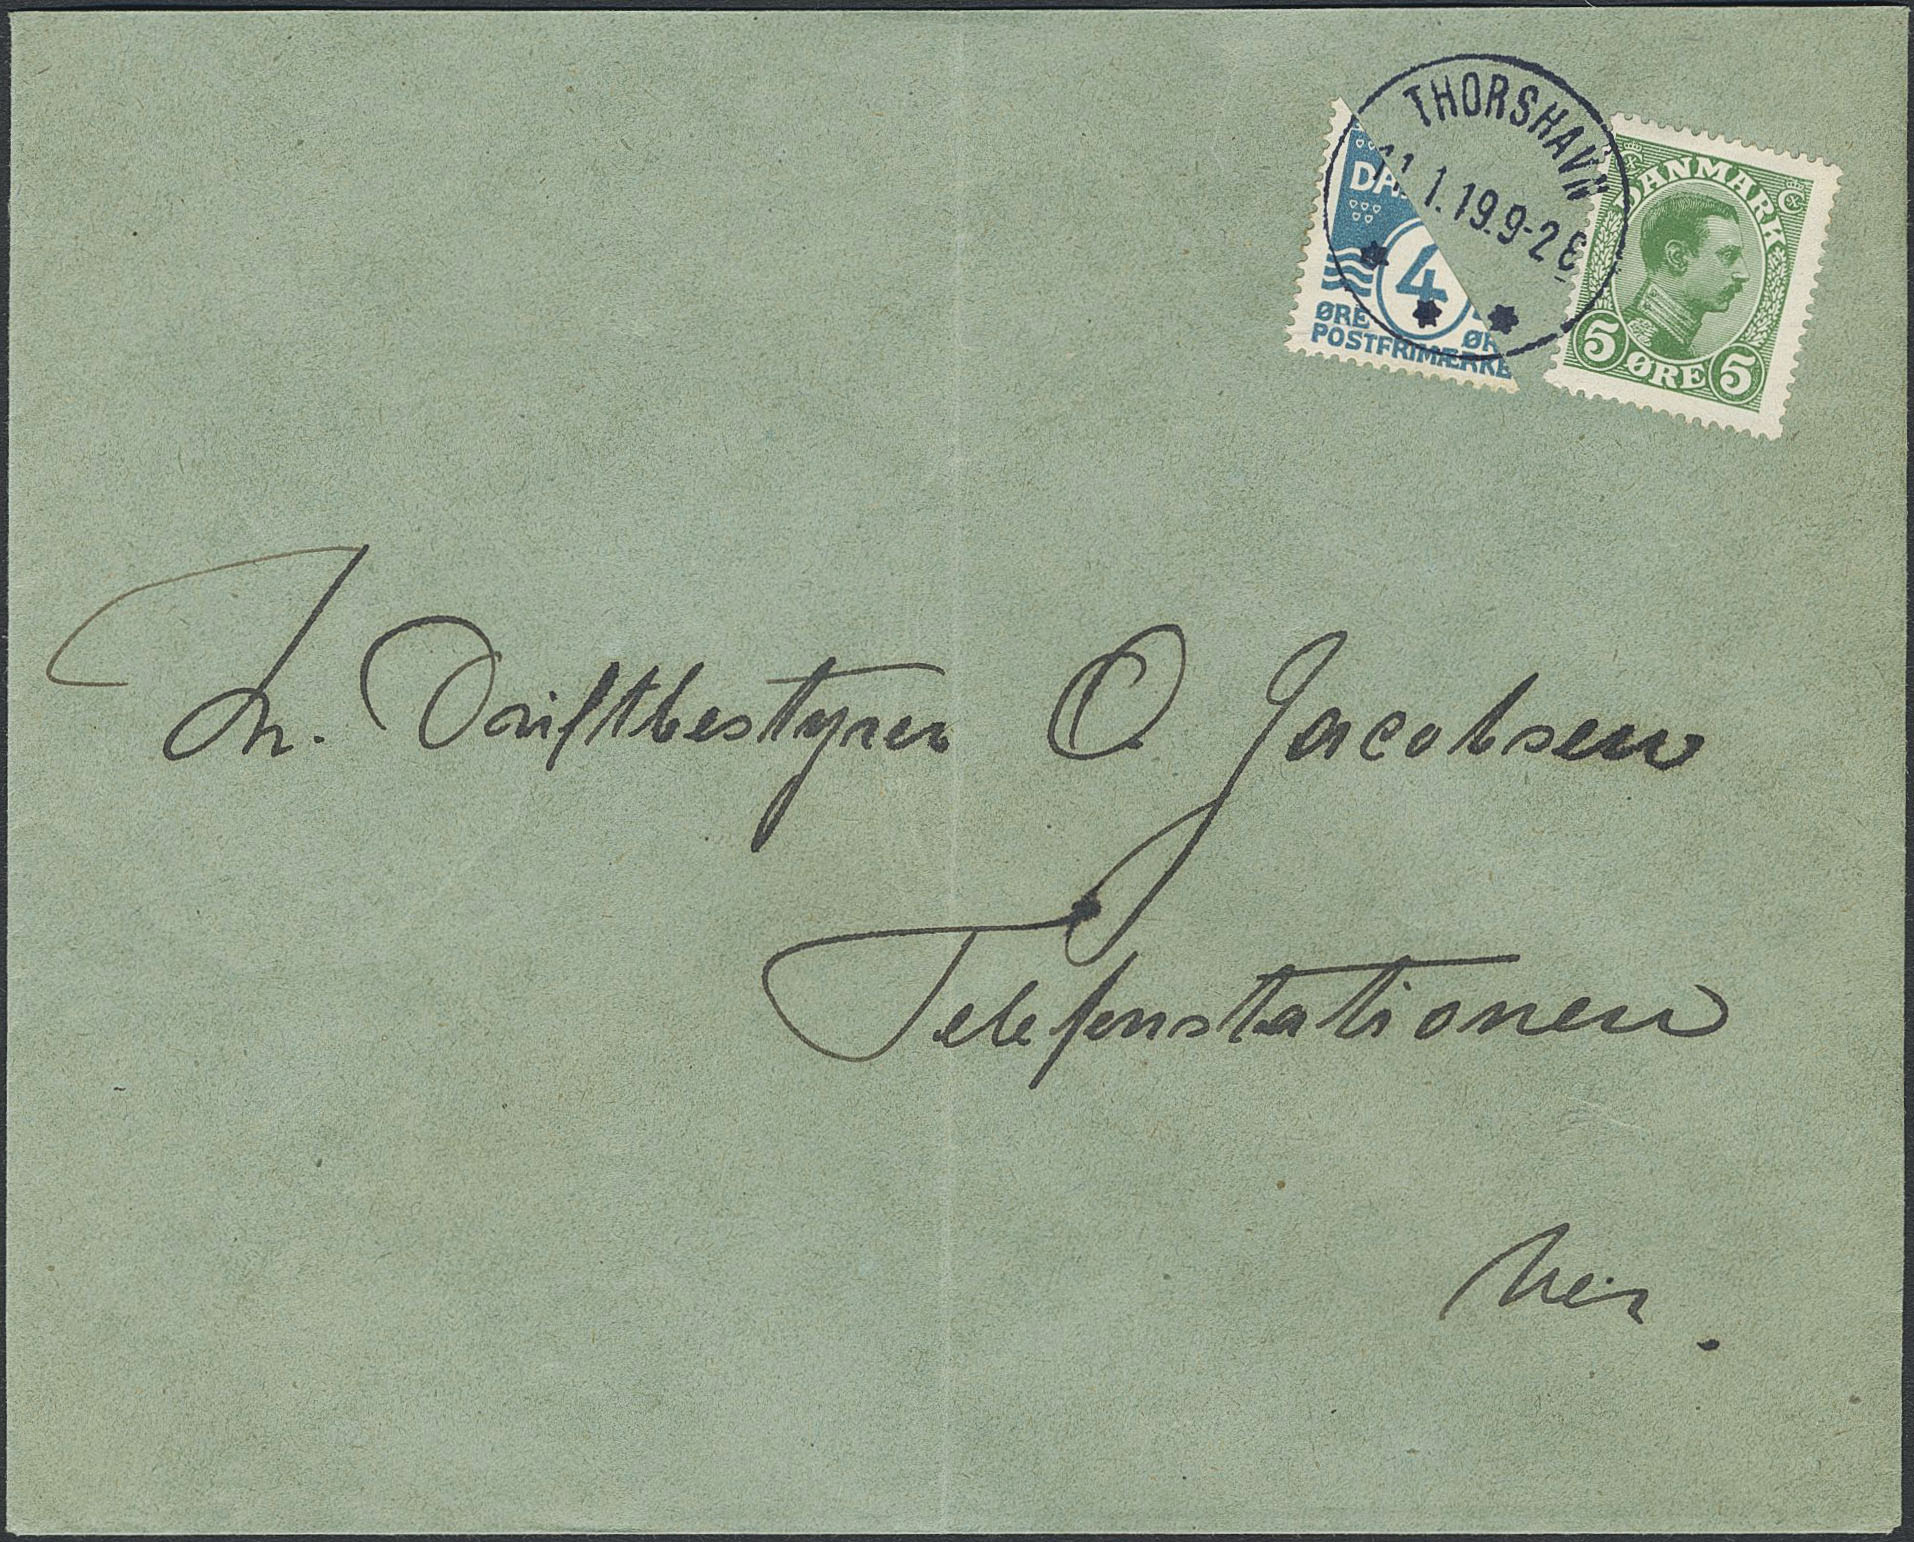 THORSHAVN
11.1.19.9-2 E
DA
4
ØRE ØR
POSTFRIMÆRKE
DANMARK
5 ØRE 5
Hr. Driftbestyrer O Jacobsen
Telefonstationen
Her.